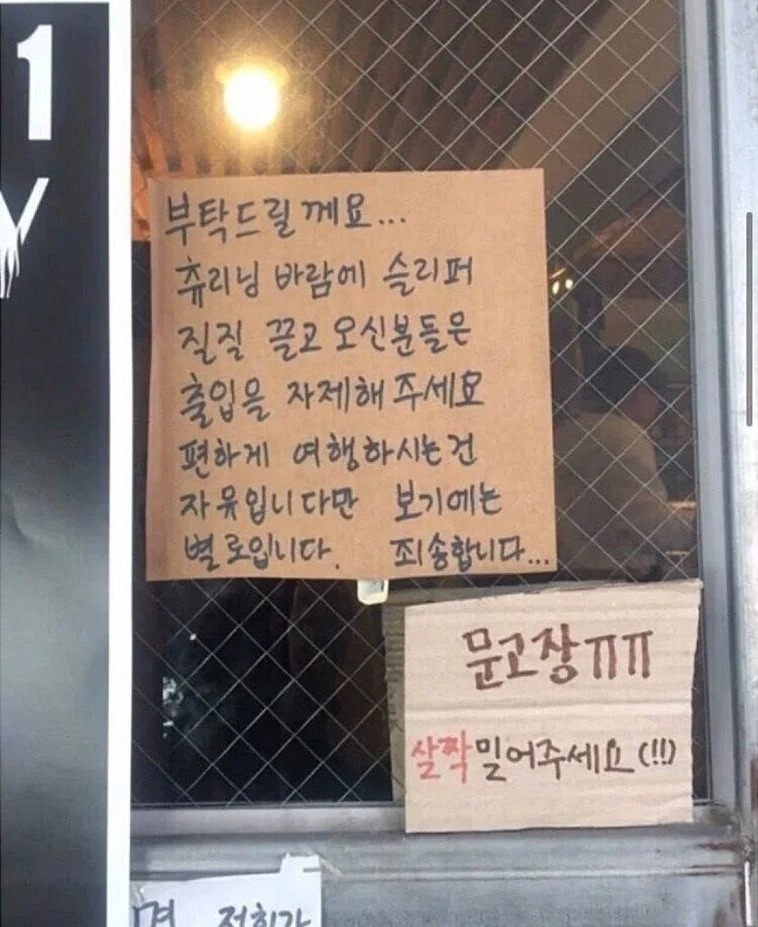 1
Y
부탁드릴께요...
츄리닝 바람에 슬리퍼
질질 끌고 오신분들은
출입을 자제해 주세요
편하게 여행하시는건
자유입니다만 보기에는
별로입니다. 죄송합니다...
문고장ㅠㅠ
살짝밀어주세요(!!)